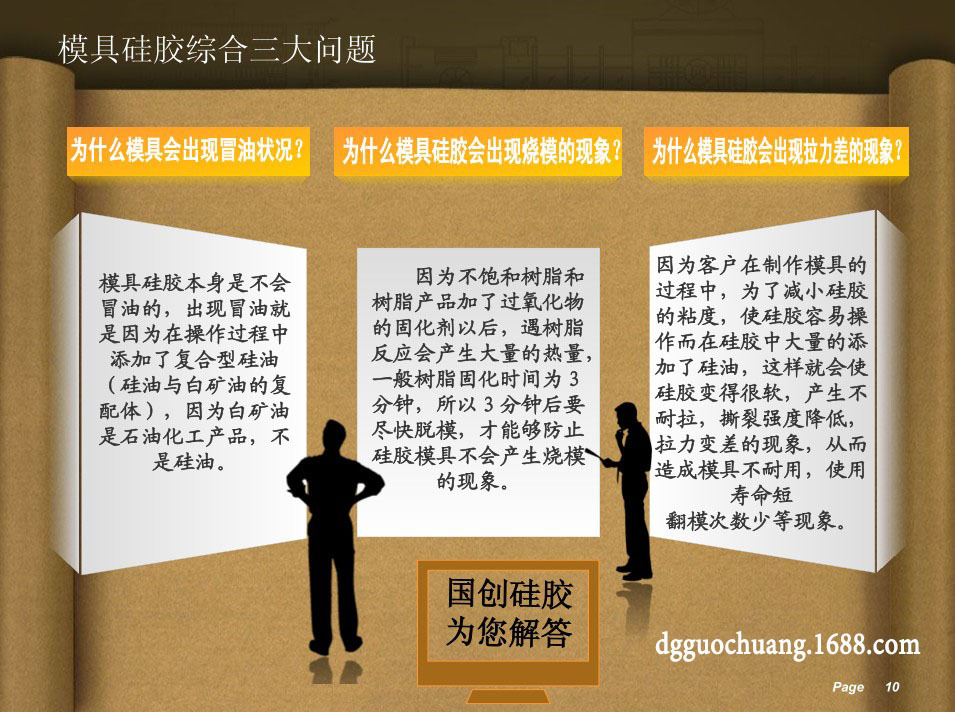 模具硅胶综合三大问题
为什么模具会出现冒油状况？
为什么模具硅胶会出现烧模的现象？
为什么模具硅胶会出现拉力差的现象？
模具硅胶本身是不会
冒油的，出现冒油就
是因为在操作过程中
添加了复合型硅油
（硅油与白矿油的复
配体），因为白矿油
是石油化工产品，不
是硅油。
因为不饱和树脂和
树脂产品加了过氧化物
的固化剂以后，遇树脂
反应会产生大量的热量，
一般树脂固化时间为 3
分钟，所以 3 分钟后要
尽快脱模，才能够防止
硅胶模具不会产生烧模
的现象。
因为客户在制作模具的
过程中，为了减小硅胶
的粘度，使硅胶容易操
作而在硅胶中大量的添
加了硅油，这样就会使
硅胶变得很软，产生不
耐拉，撕裂强度降低，
拉力变差的现象，从而
造成模具不耐用，使用
寿命短
翻模次数少等现象。
国创硅胶
为您解答
dgguochuang.1688.com
Page 10